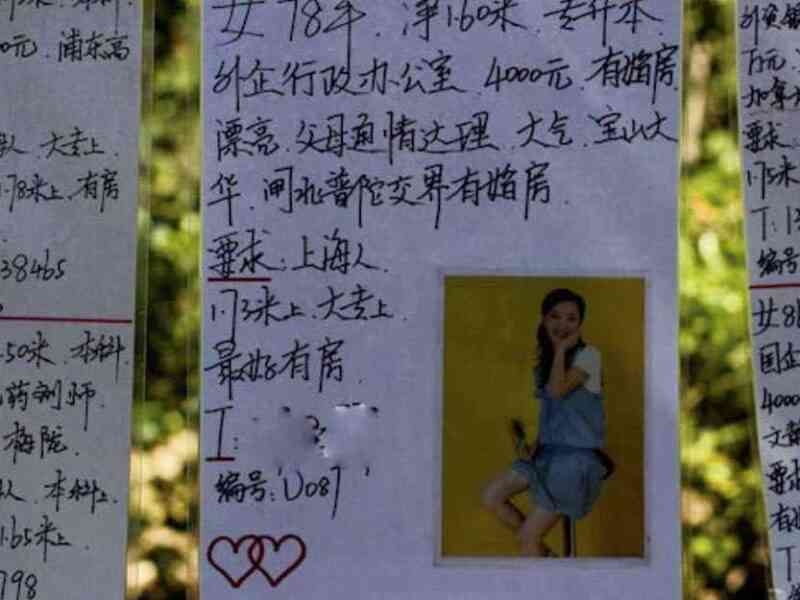 0元、浦东高
人、大专上
1.78米上、有房
38465
.50米、本科
药剂师
梅陇
人、本科上
1.65米上
798
女78年、净1.60米、专升本
外企行政办公室 4000元、有婚房
漂亮、父母通情达理、大气、宝山大
华、闸北普陀交界有婚房
要求：上海人
1.73米上、大专上
最好有房
T：
编号：U087
万元
加拿大
要求
1.75米
T：13
编号
女8
国企
4000
要求
有婚
T：